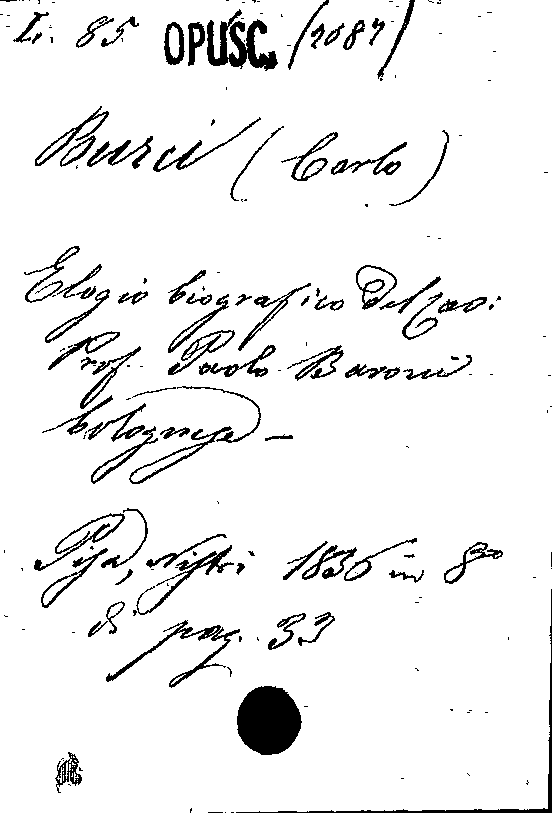 L. 85 OPUSC. (2087)
Burci (Carlo)
Elogio biografico del cav:
Prof. Paolo Baroni
bolognese -
Pisa, Nistri 1836 in 8vo
di pag. 33